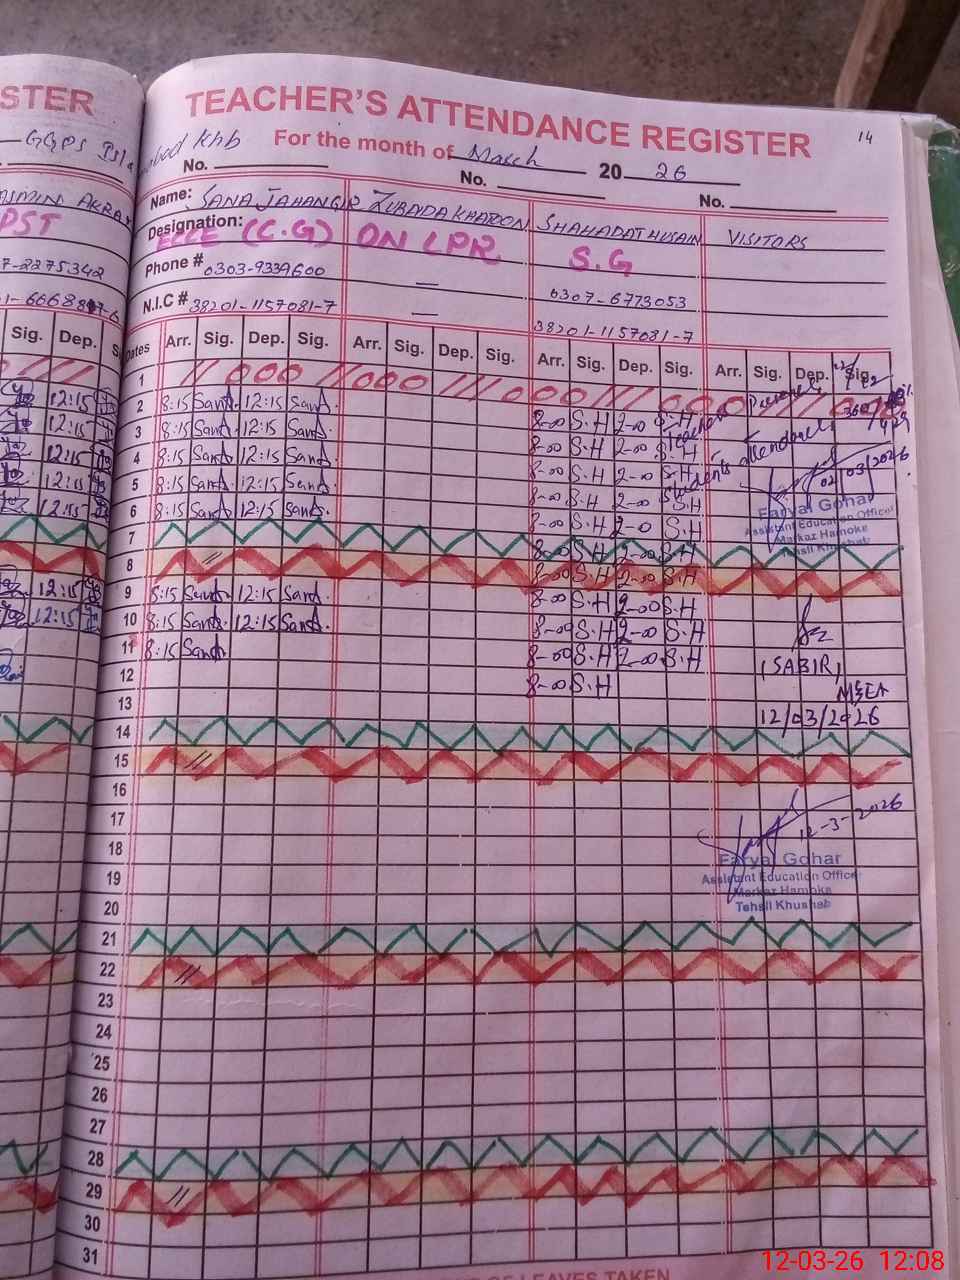 STER
TEACHER'S ATTENDANCE REGISTER
14
GGPS
khb
For the month of March 20 26
No.
No.
No.
Name: SANA JAHANGIR
ZUBAIDA KHATOON
SHAHADAT HUSAIN
VISITORS
Designation: ECCE (C.G)
ON LPR
S.G
PST
Phone # 0303-9339600
—
0307-6773053
7-2275342
N.I.C # 38201-1157081-7
—
38201-1157081-7
Sig. Dep.
Dates Arr. Sig. Dep. Sig. Arr. Sig. Dep. Sig. Arr. Sig. Dep. Sig. Arr. Sig. Dep. Sig.
1
2 8:15 Sana 12:15 Sana 8-00 S.H 2-00 S.H
3 8:15 Sana 12:15 Sana 8-00 S.H 2-00 S.H
4 8:15 Sana 12:15 Sana 8-00 S.H 2-00 S.H
5 8:15 Sana 12:15 Sana 8-00 S.H 2-00 S.H
6 8:15 Sana 12:15 Sana 8-00 S.H 2-0 S.H
7 8-00 S.H 2-00 S.H
8 8-00 S.H 2-00 S.H
9 8:15 Sana 12:15 Sana 8-00 S.H 2-00 S.H
10 8:15 Sana 12:15 Sana 8-00 S.H 2-00 S.H
11 8:15 Sana 8-00 S.H 2-00 S.H
12 8-00 S.H
13
14
15
16
17
18
19
20
21
22
23
24
25
26
27
28
29
30
31
12:15
12:15
12:15
12:15
12:15
12:15
12:15
Teachers Present
Students attendance
02/03/2026
Faryal Gohar
Assistant Education Officer
Markaz Hamoke
Tehsil Khushab
(SABIR)
MEA
12/03/2026
12-3-2026
Faryal Gohar
Assistant Education Officer
Markaz Hamoke
Tehsil Khushab
OF LEAVES TAKEN
12-03-26 12:08